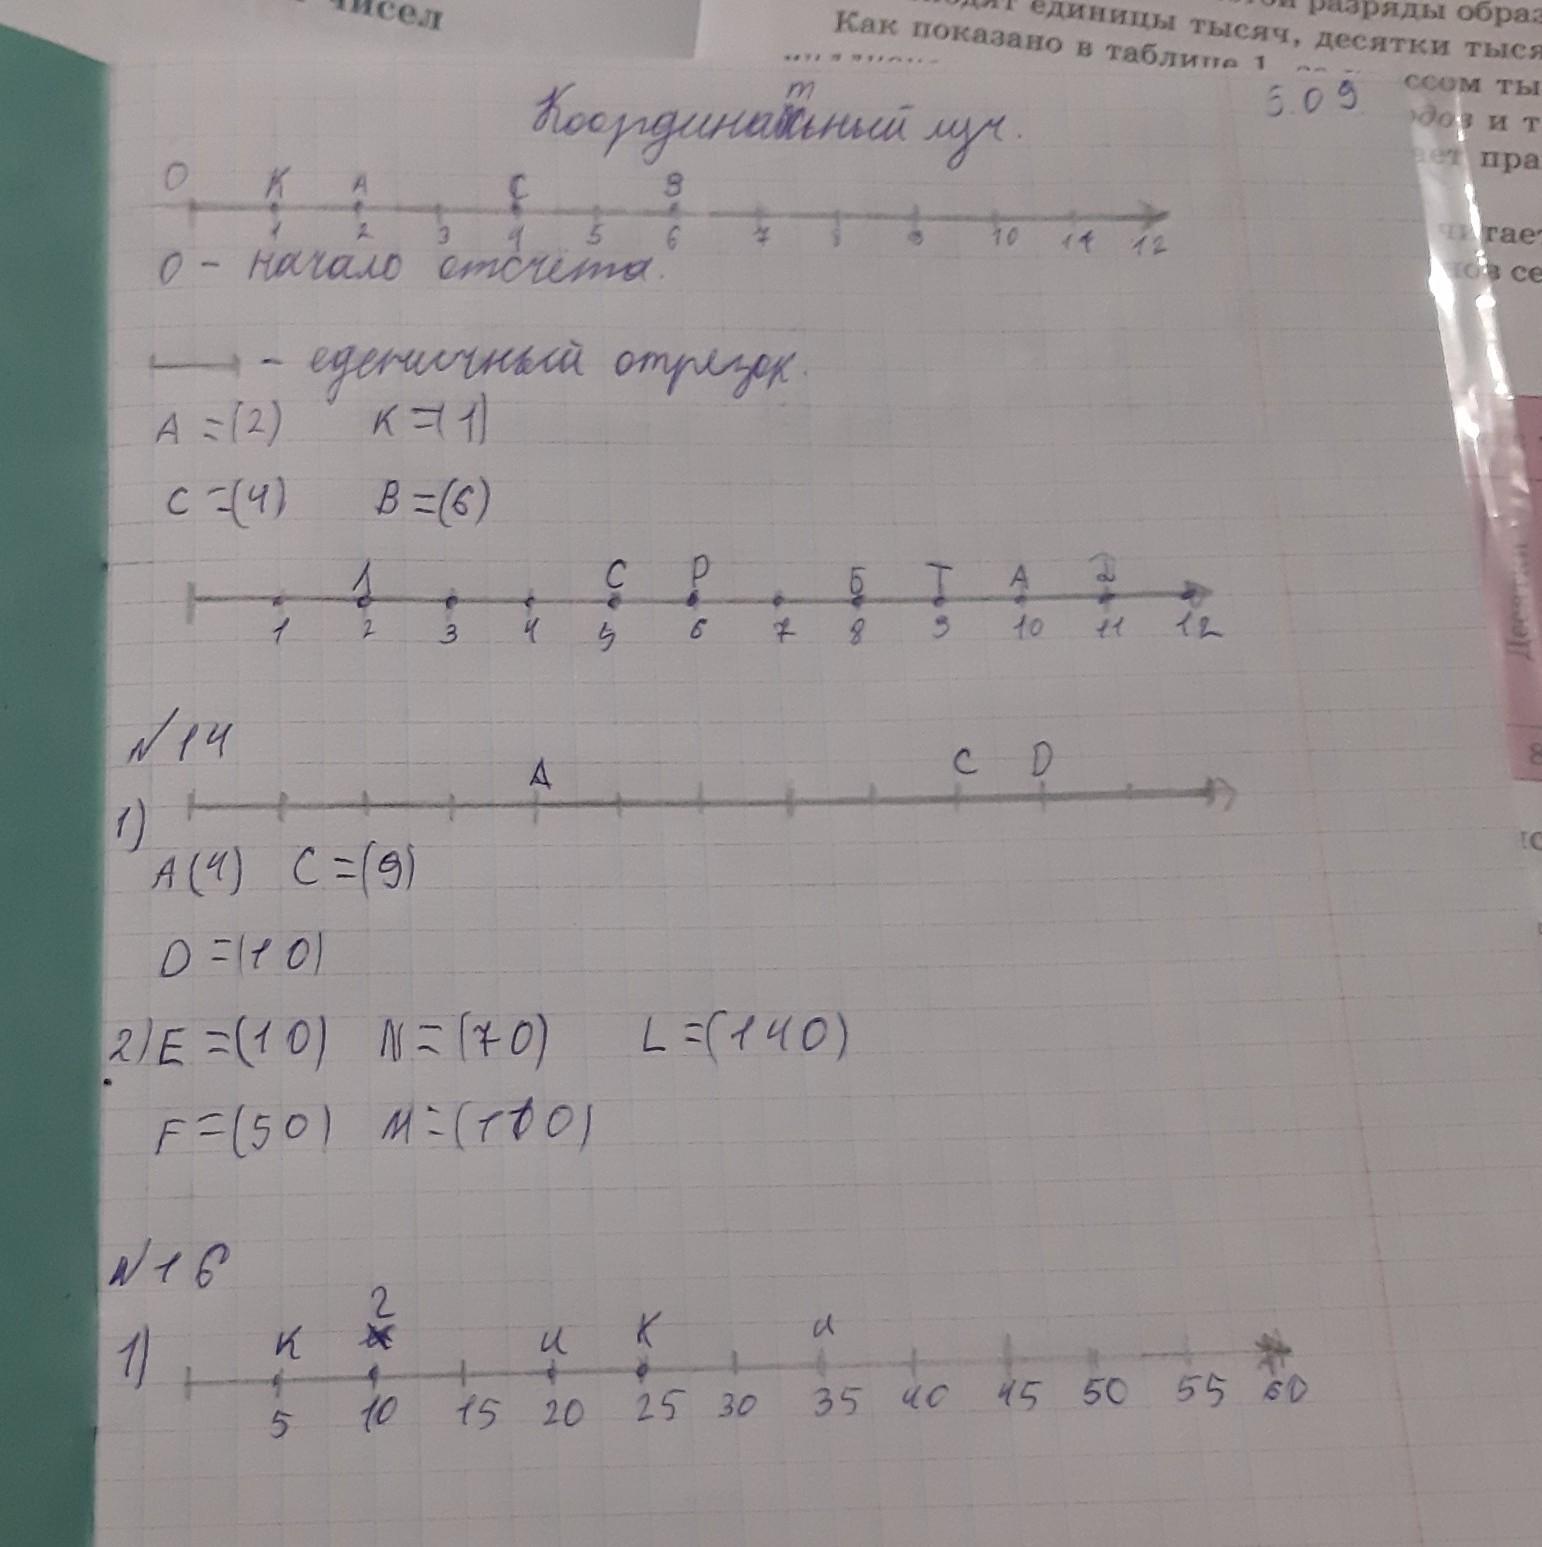 чисел
единицы тысяч, десятки тыся
Как показано в таблице 1
ссом ты
и т
ает пра
читает
нов се
5.09
Координатный луч.
О К А С В
1 2 3 4 5 6 7 8 9 10 11 12
О - начало отсчёта.
- еденичный отрезок.
А =(2) К =(1)
С =(4) В =(6)
Л С Р Б Т А Д
1 2 3 4 5 6 7 8 9 10 11 12
№14
А С D
1)
А(4) С =(9)
D =(10)
2) E =(10) N =(70) L =(140)
F =(50) M =(110)
№16
2
1) К и К и
5 10 15 20 25 30 35 40 45 50 55 60
8